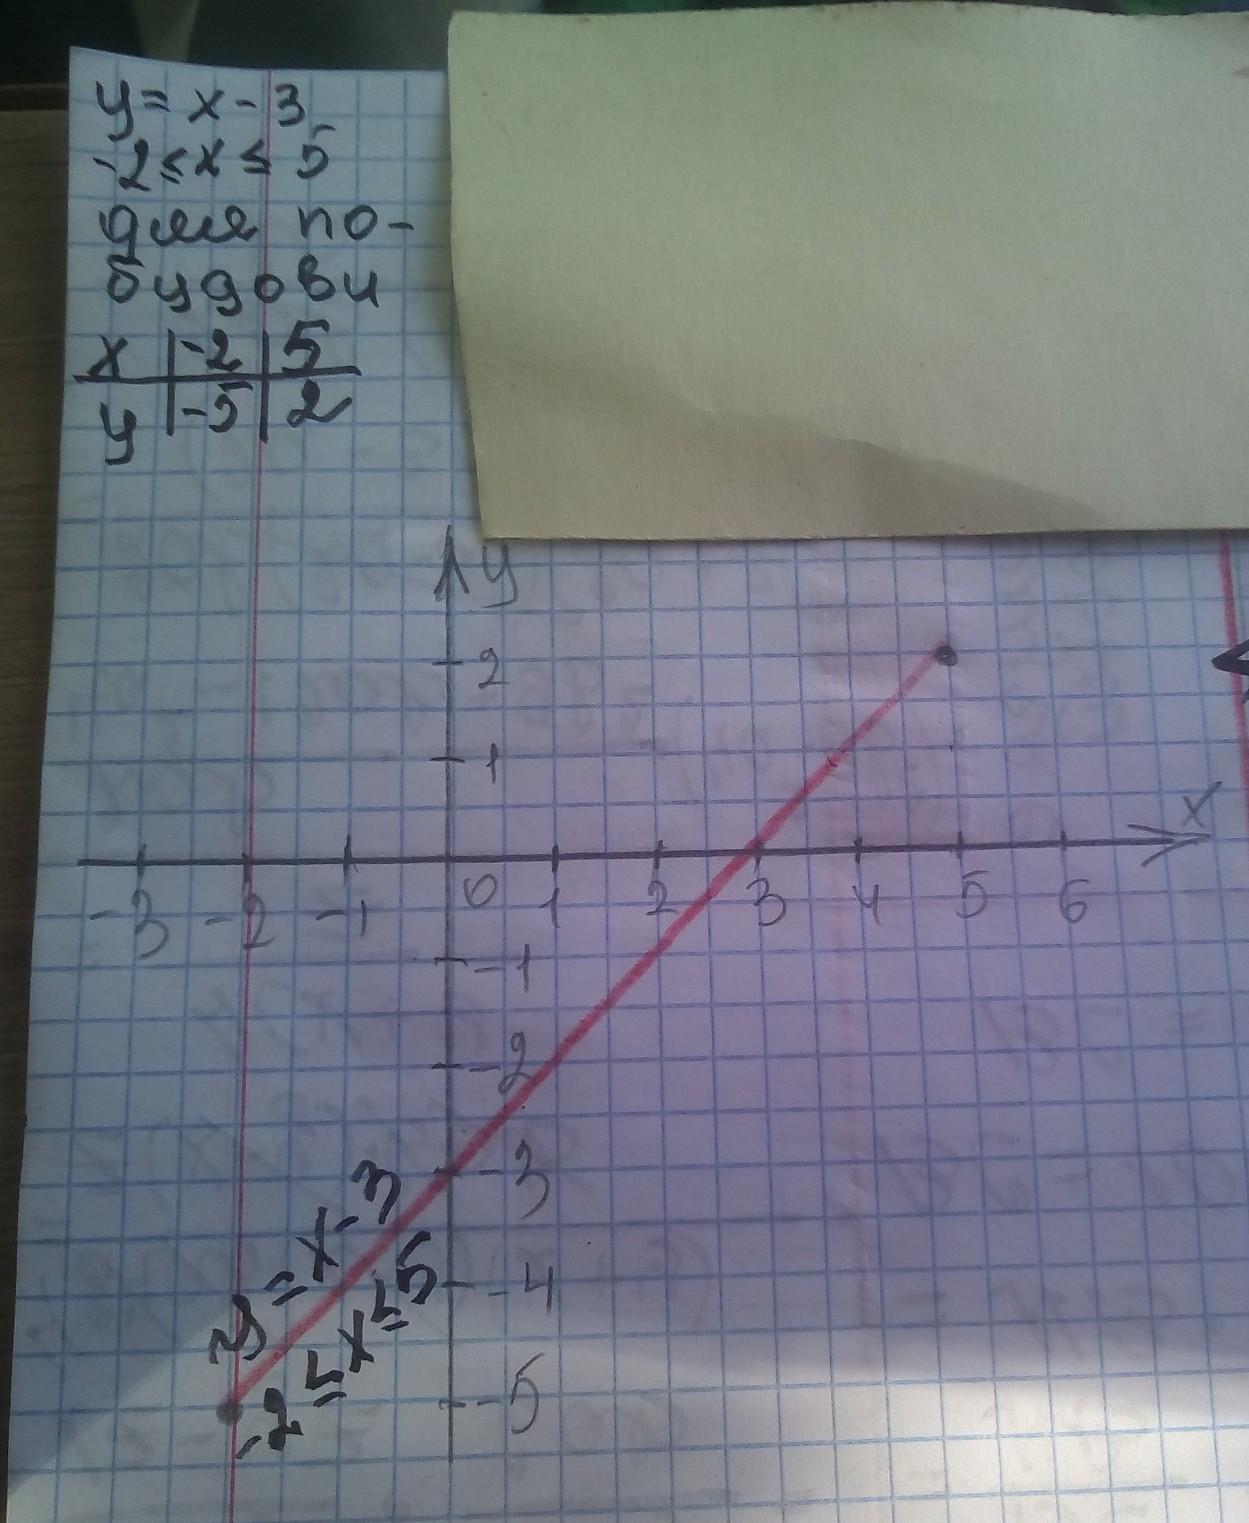 y = x - 3,
-2 ≤ x ≤ 5
для по-
будови
x | -2 | 5
y | -5 | 2
y
2
1
x
-3 -2 -1 0 1 2 3 4 5 6
-1
-2
-3
-4
-5
y = x - 3
-2 ≤ x ≤ 5